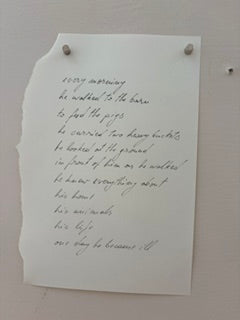 every morning
he walked to the barn
to feed the pigs
he carried two heavy buckets
he looked at the ground
in front of him as he walked
he knew everything about
his home
his animals
his life
one day he became ill